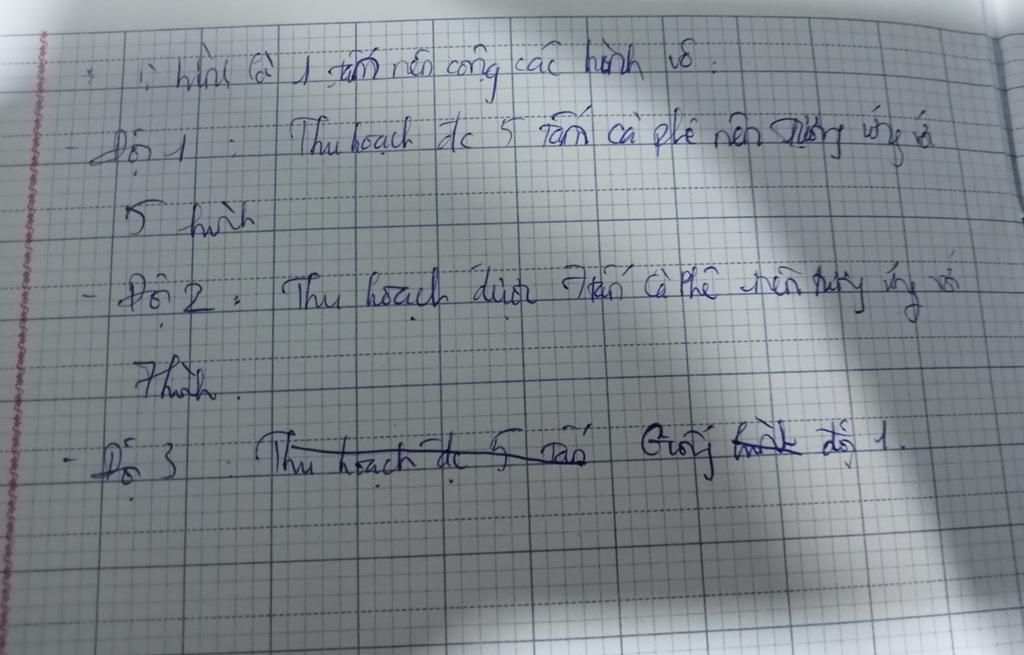 1 hình là 1 tấn nên cộng các hình vẽ.
- Đội 1 : Thu hoạch đc 5 tấn cà phê nên tương ứng
5 hình
- Đội 2 : Thu hoạch được 7 tấn cà phê nên tương ứng với
7 hình.
- Đội 3 : Thu hoạch đc 5 tấn Giống đội 1.